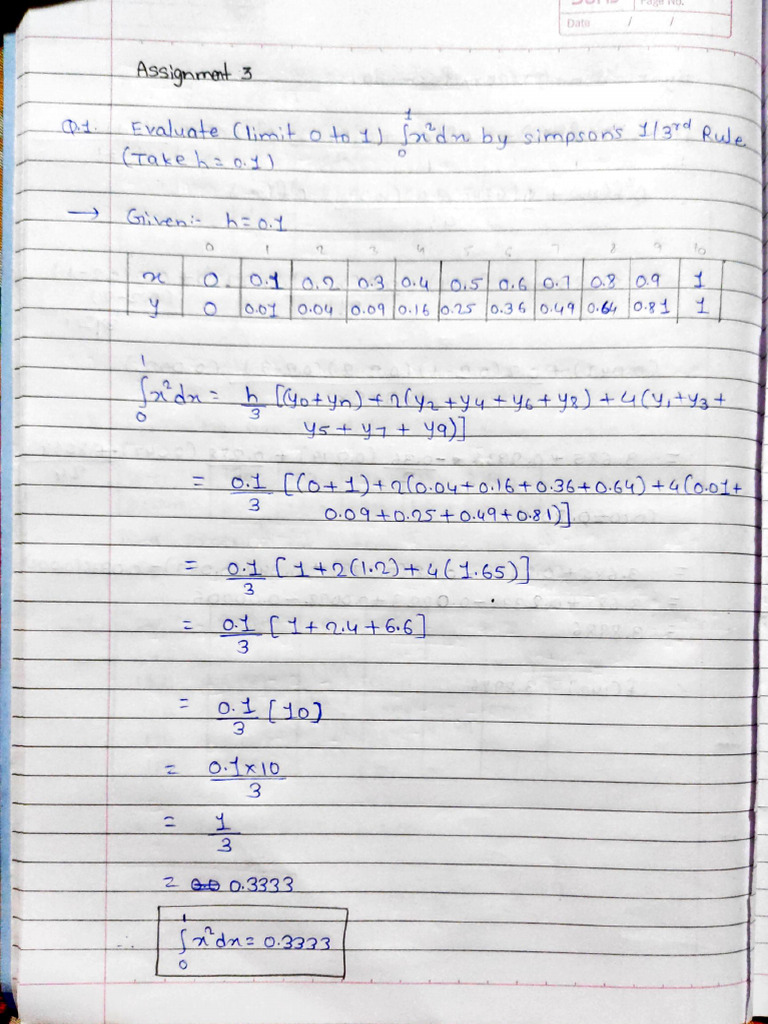 Page No.
Date / /
Assignment 3
Q.1. Evaluate (limit 0 to 1) ∫₀¹ x²dx by simpson's 1/3rd Rule
(Take h = 0.1)
→ Given:- h=0.1
0 1 2 3 4 5 6 7 8 9 10
x 0. 0.1 0.2 0.3 0.4 0.5 0.6 0.7 0.8 0.9 1
y 0 0.01 0.04 0.09 0.16 0.25 0.36 0.49 0.64 0.81 1
∫₀¹ x²dx = h/3 [(y0+yn) + 2(y2+y4+y6+y8) + 4(y1+y3+
y5+y7+y9)]
= 0.1/3 [(0+1)+2(0.04+0.16+0.36+0.64)+4(0.01+
0.09+0.25+0.49+0.81)]
= 0.1/3 [1+2(1.2)+4(1.65)]
= 0.1/3 [1+2.4+6.6]
= 0.1/3 [10]
= 0.1×10/3
= 1/3
= 0.3333
∴ ∫₀¹ x²dx = 0.3333